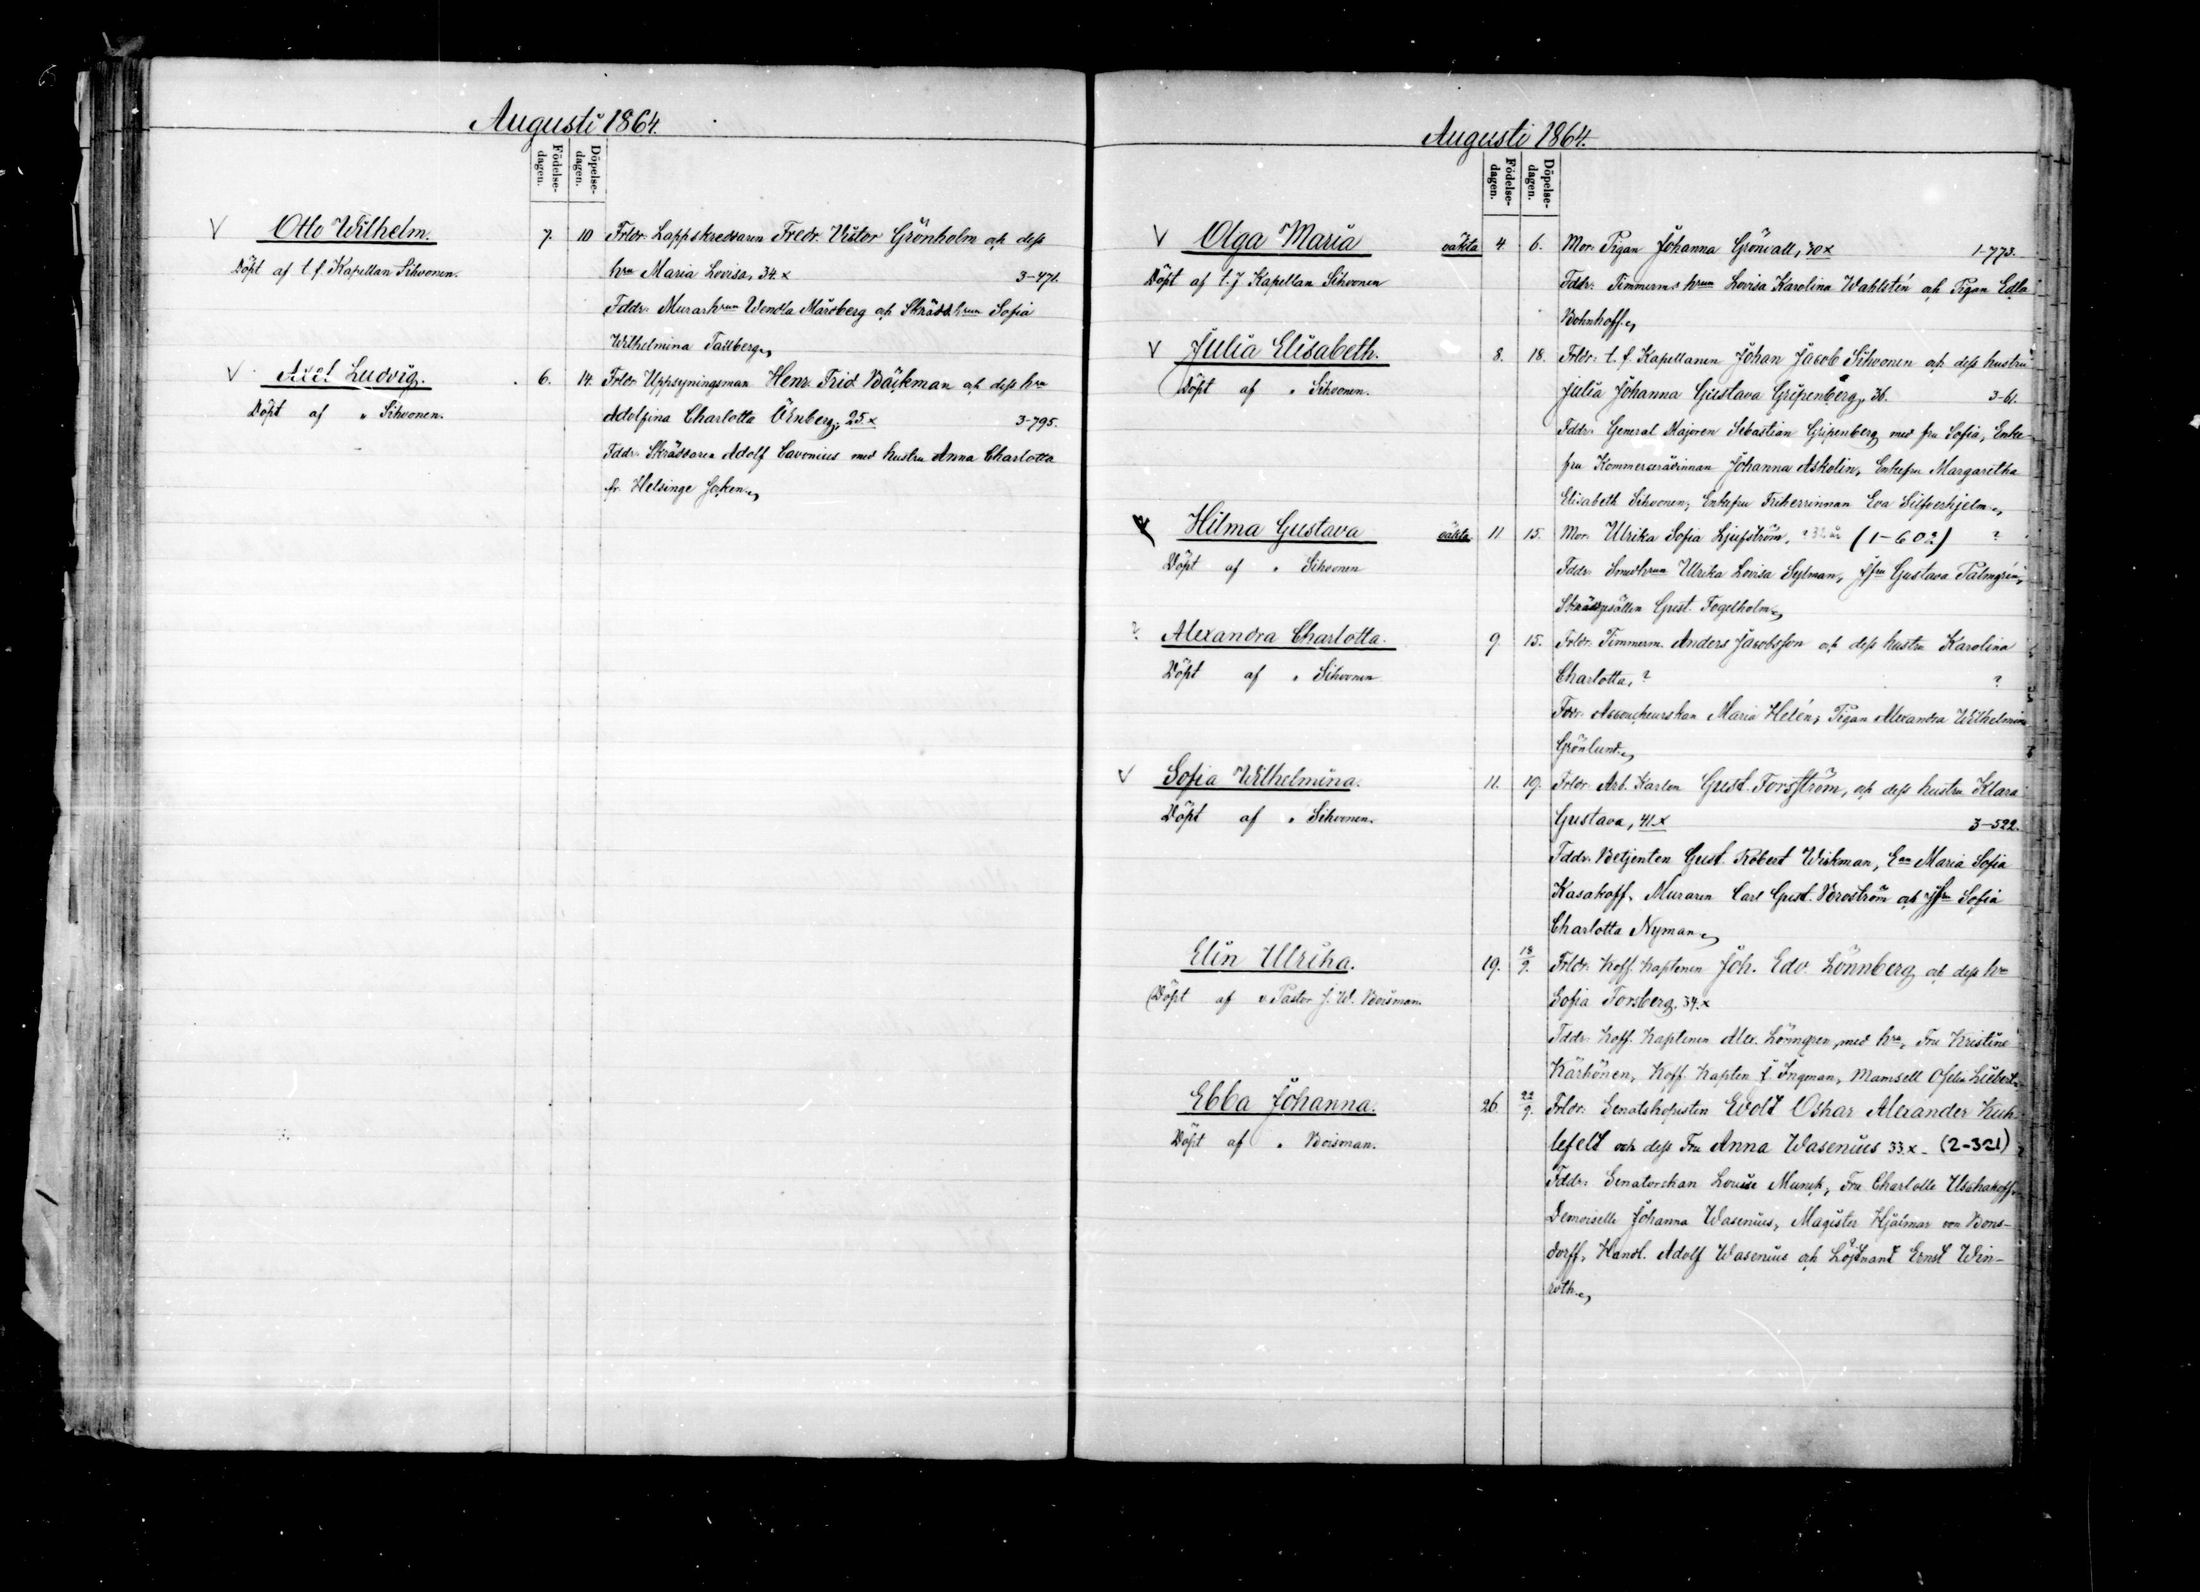 Augusti 1864.
Födelse-
dagen.
Döpelse-
dagen.
Otto Wilhelm.
Döpt af t.f. Kapellan Sihvonen.
7. 10 Frldr. Lappskreddaren Fredr. Victor Grönholm och dess
hru Maria Lovisa, 34.x 3-471.
Fddr. Murarhrun Wendla Mårdberg och Skrädd.hrun Sofia
Wilhelmina Tallberg
Axel Ludvig.
Döpt af " Sihvonen.
6. 14. Frldr Uppsyningsman Henr. Frid Bäckman och dess hru
Adolfina Charlotta Örnberg, 25.x 3-795.
Fddr. Skräddaren Adolf Cavonius med hustru Anna Charlotta
fr. Helsinge Socken
Augusti 1864.
Födelse-
dagen.
Döpelse-
dagen.
Olga Maria oäkta
Döpt af t.f Kapellan Sihvonen
4 6. Mor. Pigan Johanna Grönvall, 30x 1-773.
Fddr. Timmerms hrun Lovisa Karolina Wahlstén och Pigan Edla
Bohnhoff.
Julia Elisabeth.
Döpt af " Sihvonen.
8. 18. Frldr. t.f. Kapellanen Johan Jacob Sihvonen och dess hustru
Julia Johanna Gustava Gripenberg, 36. 3-61.
Fddr. General Majoren Sebastian Gripenberg med fru Sofia, Enke-
fru Kommerserådinnan Johanna Askolin, Enkefru Margaretha
Elisabeth Sihvonen, Enkefru Friherrinnan Eva Silfverhjelm
Hilma Gustava oäkta
Döpt af " Sihvonen
11 15. Mor. Ulrika Sofia Ljufström, (1-602) ?
Fddr. Smedhrun Ulrika Lovisa Sylman, Jfru Gustava Palmgrén,
Skräddgesällen Gust. Fogelholm
? Alexandra Charlotta.
Döpt af " Sihvonen
9. 15. Frldr. Timmerm. Anders Jacobsson och dess hustru Karolina
Charlotta, ? ?
Fddr. Accoucheurskan Maria Helén, Pigan Alexandra Wilhelmina
Grönlund
Sofia Wilhelmina.
Döpt af " Sihvonen.
11. 19. Frldr. Arb. Karlen Gust. Forsström, och dess hustru Klara
Gustava, 41.x 3-522.
Fddr. Betjenten Gust. Robert Wickman, Maria Sofia
Kasakoff, Muraren Carl Gust. Broström och Jfru Sofia
Charlotta Nyman
Elin Ulrika.
Döpt af v. Pastor J.W. Boisman.
19. 18/9. Frldr. Koff. Kaptenen Joh. Edv Lönnberg och dess hru
Sofia Forsberg, 34.x
Fddr. Koff. Kaptenen Alex. Lönngren med hru, Fru Kristine
Kärhönen, Koff. Kapten J. Ingman, Mamsell
Ebba Johanna.
Döpt af " Boisman.
26. 22/9. Frldr. Senatskopisten Evolt Oskar Alexander Kuh-
lefelt och dess Fru Anna Wasenius 33.x. (2-321)
Fddr. Senatorskan Louise Munck, Fru Charlotte Uschakoff,
Demoiselle Johanna Wasenius, Magister Hjalmar von Bons-
dorff, Handl. Adolf Wasenius och Löjtnant Ernst Win-
roth